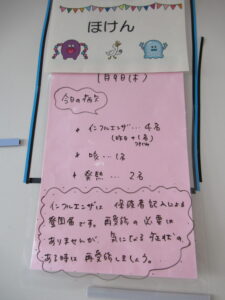 ほけん
1月9日(木)
今日の病欠
インフルエンザ…4名
(昨日+1名)
咳…1名
発熱…2名
インフルエンザは 保護者記入による
登園届です。再受診の必要は
ありませんが、気になる症状の
ある時は 再受診しましょう。